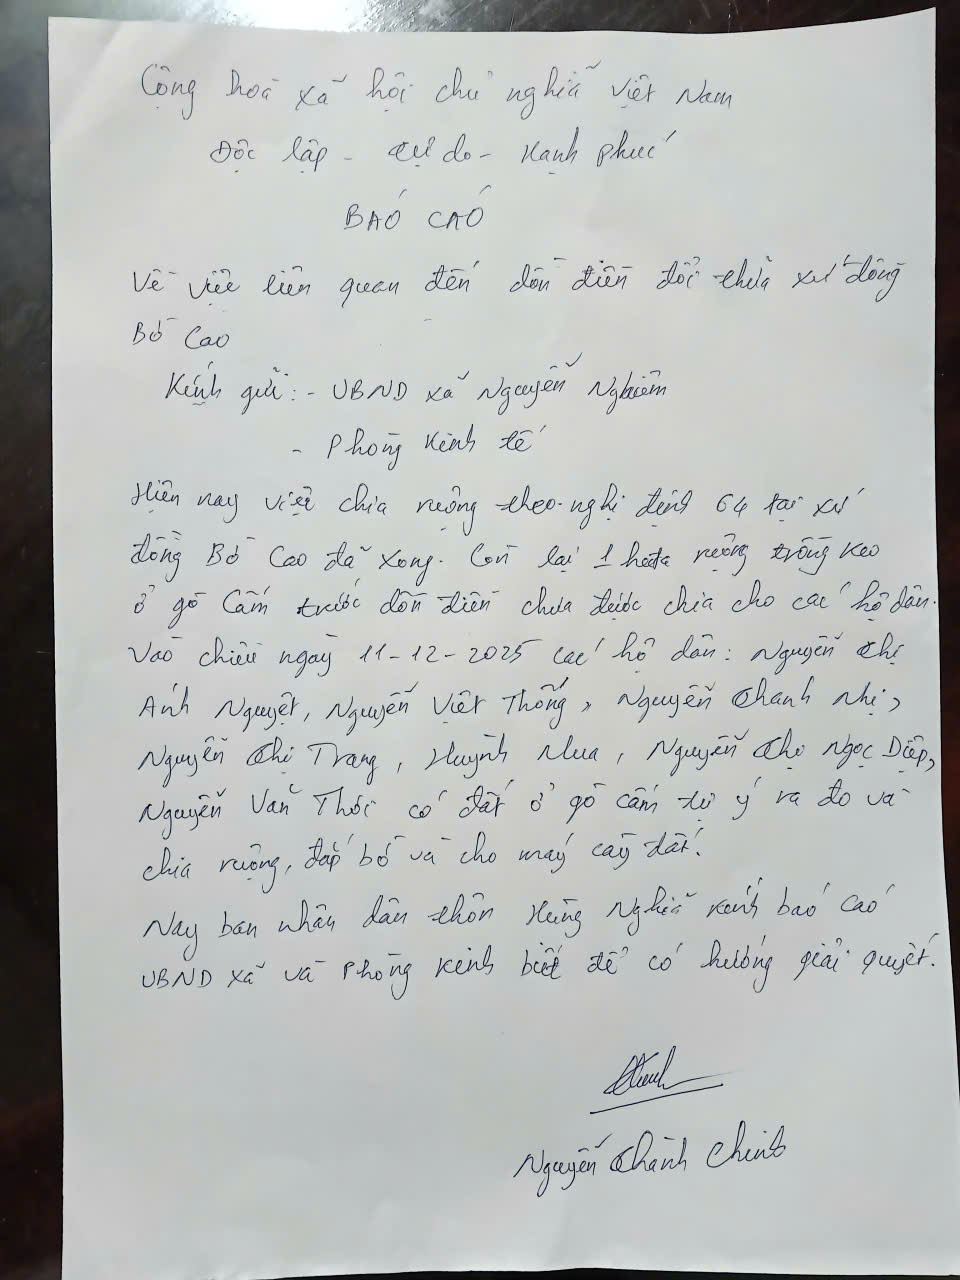 Cộng hoà xã hội chủ nghĩa Việt Nam
Độc lập - Tự do - Hạnh phúc
BÁO CÁO
Về việc liên quan đến dồn điền đổi thửa xứ đồng
Bờ Cao
Kính gửi: - UBND xã Nguyễn Nghiêm
- Phòng Kinh tế
Hiện nay việc chia ruộng theo nghị định 64 tại xứ
đồng Bờ Cao đã xong. Còn lại 1 hecta ruộng trồng keo
ở gò Cấm trước dồn điền chưa được chia cho các hộ dân.
Vào chiều ngày 11-12-2025 các hộ dân: Nguyễn Thị
Ánh Nguyệt, Nguyễn Việt Thống, Nguyễn Thanh Nhị,
Nguyễn Thị Trang, Huỳnh Mua, Nguyễn Thị Ngọc Diệp,
Nguyễn Văn Thới có đất ở gò cấm tự ý ra đo và
chia ruộng, đắp bờ và cho máy cày đất.
Nay ban nhân dân thôn Hùng Nghĩa kính báo cáo
UBND xã và phòng kinh biết để có hướng giải quyết.
Nguyễn Thành Chinh